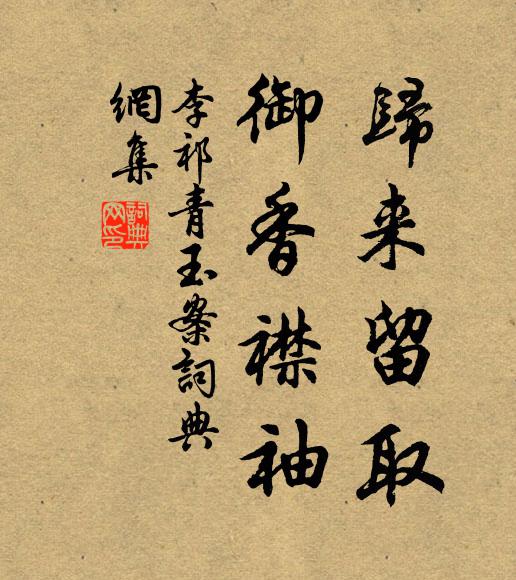 歸来留取
御香襟袖
李祁青玉案詞典
網集
詞典
网印